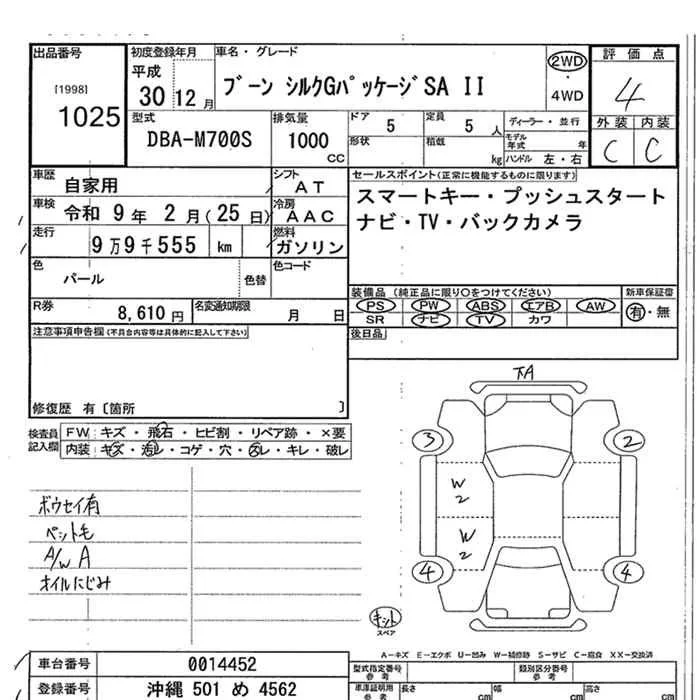 出品番号
[1998]
1025
初度登録年月
平成
30 12月
車名・グレード
ブーン シルクGパッケージSA II
2WD
・
4WD
評価点
4
外装 内装
C C
型式
DBA-M700S
排気量
1000
CC
ドア
5
定員
5 人
形状
積載
kg
ディーラー・並行
モデル年式 年
ハンドル 左・右
車歴 自家用
シフト
AT
車検 令和 9年 2月(25日)
冷房
AAC
走行
9万9千555 km
燃料
ガソリン
色
パール
色替
色コード
R券
8,610円
名変通知期限
月 日
セールスポイント(正常に機能するものに限ります)
スマートキー・プッシュスタート
ナビ・TV・バックカメラ
装備品(純正品に限り○をつけてください)
新車保証書
PS PW ABS エアB AW
SR ナビ TV カワ
有・無
後日品
注意事項申告欄(不具合内容等は具体的に記入して下さい)
修復歴 有〔箇所 〕
検査員
記入欄
FW キズ・飛石・ヒビ割・リペア跡・×要
内装 キズ・汚レ・コゲ・穴・スレ・キレ・破レ
ボウセイ有
ペット毛
A/W A
オイルにじみ
TA
3 2
W2
W2
4 4
キット
スペア
A-キズ E-エクボ U-凹み W-補修跡 S-サビ C-腐食 XX-交換済
車台番号 0014452
登録番号 沖縄 501 め 4562
型式指定番号
参考
類別区分番号
参考
車庫証明用
参考
長さ cm
幅 cm
高さ cm